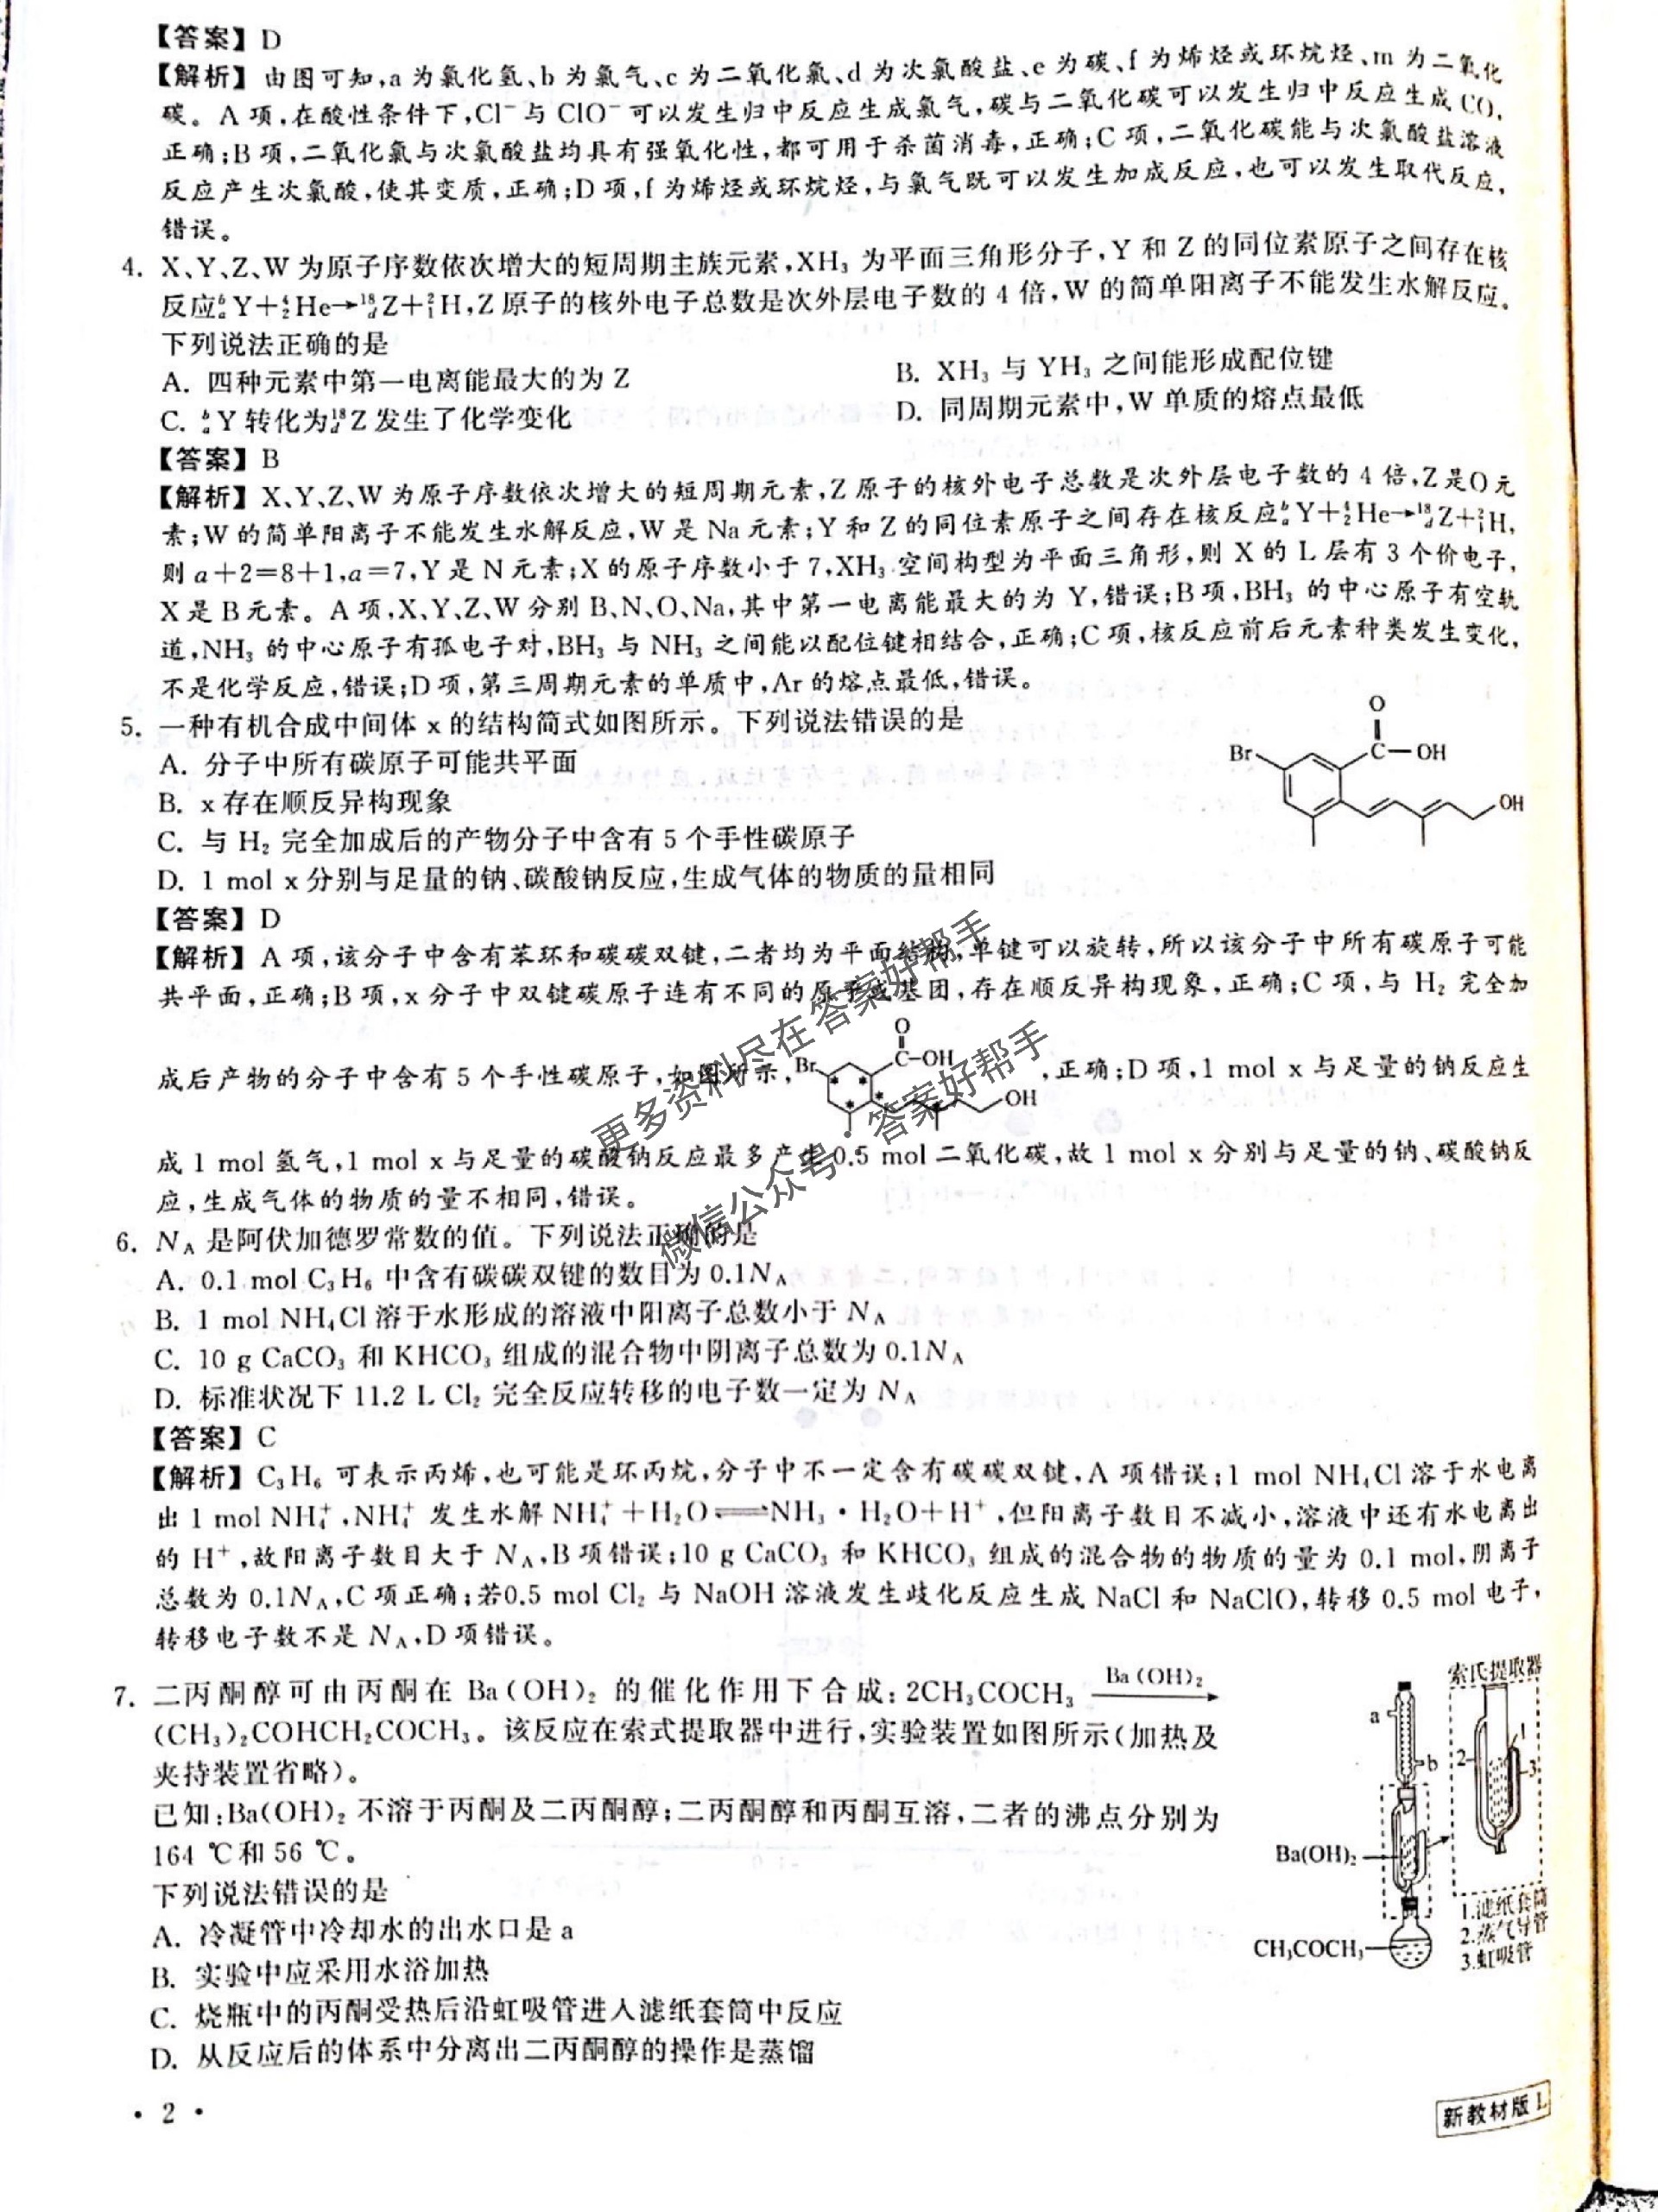 【答案】D
【解析】由图可知,a为氯化氢、b为氯气、c为二氧化氯、d为次氯酸盐、e为碳、f为烯烃或环烷烃、m为二氧化
碳。A项,在酸性条件下,Cl⁻与ClO⁻可以发生归中反应生成氯气,碳与二氧化碳可以发生归中反应生成CO,
正确;B项,二氧化氯与次氯酸盐均具有强氧化性,都可用于杀菌消毒,正确;C项,二氧化碳能与次氯酸盐溶液
反应产生次氯酸,使其变质,正确;D项,f为烯烃或环烷烃,与氯气既可以发生加成反应,也可以发生取代反应,
错误。
4. X、Y、Z、W为原子序数依次增大的短周期主族元素,XH₃为平面三角形分子,Y和Z的同位素原子之间存在核
反应ᵇₐY+⁴₂He→¹⁸_dZ+²₁H,Z原子的核外电子总数是次外层电子数的4倍,W的简单阳离子不能发生水解反应。
下列说法正确的是
A. 四种元素中第一电离能最大的为Z
B. XH₃与YH₃之间能形成配位键
C. ᵇₐY转化为¹⁸_dZ发生了化学变化
D. 同周期元素中,W单质的熔点最低
【答案】B
【解析】X、Y、Z、W为原子序数依次增大的短周期元素,Z原子的核外电子总数是次外层电子数的4倍,Z是O元
素;W的简单阳离子不能发生水解反应,W是Na元素;Y和Z的同位素原子之间存在核反应ᵇₐY+⁴₂He→¹⁸_dZ+²₁H,
则a+2=8+1,a=7,Y是N元素;X的原子序数小于7,XH₃空间构型为平面三角形,则X的L层有3个价电子,
X是B元素。A项,X、Y、Z、W分别B、N、O、Na,其中第一电离能最大的为Y,错误;B项,BH₃的中心原子有空轨
道,NH₃的中心原子有孤电子对,BH₃与NH₃之间能以配位键相结合,正确;C项,核反应前后元素种类发生变化,
不是化学反应,错误;D项,第三周期元素的单质中,Ar的熔点最低,错误。
5. 一种有机合成中间体x的结构简式如图所示。下列说法错误的是
A. 分子中所有碳原子可能共平面
B. x存在顺反异构现象
C. 与H₂完全加成后的产物分子中含有5个手性碳原子
D. 1 mol x分别与足量的钠、碳酸钠反应,生成气体的物质的量相同
O
Br
C—OH
OH
【答案】D
【解析】A项,该分子中含有苯环和碳碳双键,二者均为平面结构,单键可以旋转,所以该分子中所有碳原子可能
共平面,正确;B项,x分子中双键碳原子连有不同的原子或基团,存在顺反异构现象,正确;C项,与H₂完全加
O
Br
C—OH
OH
成后产物的分子中含有5个手性碳原子,如图所示,,正确;D项,1 mol x与足量的钠反应生
成1 mol氢气,1 mol x与足量的碳酸钠反应最多产生0.5 mol二氧化碳,故1 mol x分别与足量的钠、碳酸钠反
应,生成气体的物质的量不相同,错误。
更多资料尽在答案好帮手
微信公众号·答案好帮手
6. N_A是阿伏加德罗常数的值。下列说法正确的是
A. 0.1 mol C₃H₆中含有碳碳双键的数目为0.1N_A
B. 1 mol NH₄Cl溶于水形成的溶液中阳离子总数小于N_A
C. 10 g CaCO₃和KHCO₃组成的混合物中阴离子总数为0.1N_A
D. 标准状况下11.2 L Cl₂完全反应转移的电子数一定为N_A
【答案】C
【解析】C₃H₆可表示丙烯,也可能是环丙烷,分子中不一定含有碳碳双键,A项错误;1 mol NH₄Cl溶于水电离
出1 mol NH₄⁺,NH₄⁺发生水解NH₄⁺+H₂O⇌NH₃·H₂O+H⁺,但阳离子数目不减小,溶液中还有水电离出
的H⁺,故阳离子数目大于N_A,B项错误;10 g CaCO₃和KHCO₃组成的混合物的物质的量为0.1 mol,阴离子
总数为0.1N_A,C项正确;若0.5 mol Cl₂与NaOH溶液发生歧化反应生成NaCl和NaClO,转移0.5 mol电子,
转移电子数不是N_A,D项错误。
7. 二丙酮醇可由丙酮在Ba(OH)₂的催化作用下合成:2CH₃COCH₃ —Ba(OH)₂→
(CH₃)₂COHCH₂COCH₃。该反应在索式提取器中进行,实验装置如图所示(加热及
夹持装置省略)。
已知:Ba(OH)₂不溶于丙酮及二丙酮醇;二丙酮醇和丙酮互溶,二者的沸点分别为
164 ℃和56 ℃。
下列说法错误的是
A. 冷凝管中冷却水的出水口是a
B. 实验中应采用水浴加热
C. 烧瓶中的丙酮受热后沿虹吸管进入滤纸套筒中反应
D. 从反应后的体系中分离出二丙酮醇的操作是蒸馏
索氏提取器
a
b
1
2
3
Ba(OH)₂
CH₃COCH₃
1.滤纸套筒
2.蒸气导管
3.虹吸管
· 2 ·
新教材版L